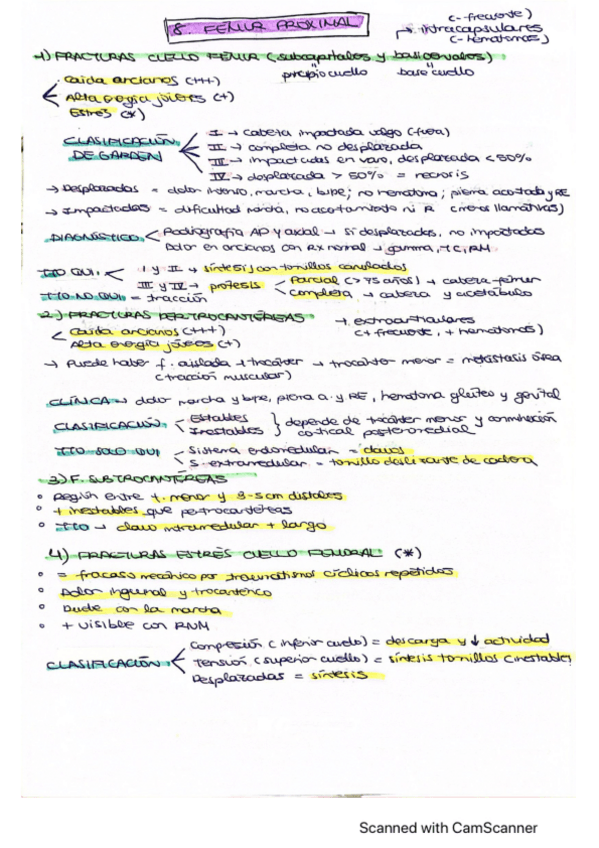 8. FÉMUR PROXIMAL
(- frecuente)
intracapsulares
(- hematomas)
1) FRACTURAS CUELLO FÉMUR (subcapitales y basicervales)
principio cuello
base cuello
Caída ancianos (+++)
Alta energía jóvenes (+)
Estrés (*)
CLASIFICACIÓN DE GARDEN
I → cabeza impactada valgo (fuera)
II → completa no desplazada
III → impactadas en varo, desplazada < 50%
IV → desplazada > 50% = necrosis
→ Desplazadas = dolor intenso, marcha, bipe; no hematoma; pierna acortada y RE
→ Impactadas = dificultad marcha, no acortamiento ni R (menos llamativas)
DIAGNÓSTICO
Radiografía AP y axial → si desplazadas, no impactadas
Dolor en ancianos con RX normal → gamma, TC, RM
TTO QUI.
I y II → síntesis con tornillos canulados
III y IV → prótesis
Parcial (>75 años) → cabeza fémur
Completa → cabeza y acetábulo
TTO NO QUI = tracción
2) FRACTURAS PERTROCANTÉREAS
→ extraarticulares
(+ frecuente, + hematomas)
Caída ancianos (+++)
Alta energía jóvenes (+)
→ Puede haber f. aislada trocánter → trocánter menor = metástasis ósea
(tracción muscular)
CLÍNICA → dolor marcha y bipe, pierna a. y RE, hematoma glúteo y genital
CLASIFICACIÓN
Estables
Inestables
depende de trocánter menor y conminución
cortical posteromedial
TTO SOLO QUI
Sistema endomedular = clavos
S. extramedular = tornillo deslizante de cadera
3) F. SUBTROCANTÉREAS
• Región entre t. menor y 3-5cm distales
• + inestables que pertrocantéreas
• TTO → clavo intramedular + largo
4) FRACTURAS ESTRÉS CUELLO FEMORAL (*)
• = fracaso mecánico por traumatismos cíclicos repetidos
• Dolor inguinal y trocantérico
• Duele con la marcha
• + visible con RNM
CLASIFICACIÓN
Compresión (inferior cuello) = descarga y ↓ actividad
Tensión (superior cuello) = síntesis tornillos (inestables)
Desplazadas = síntesis
Scanned with CamScanner